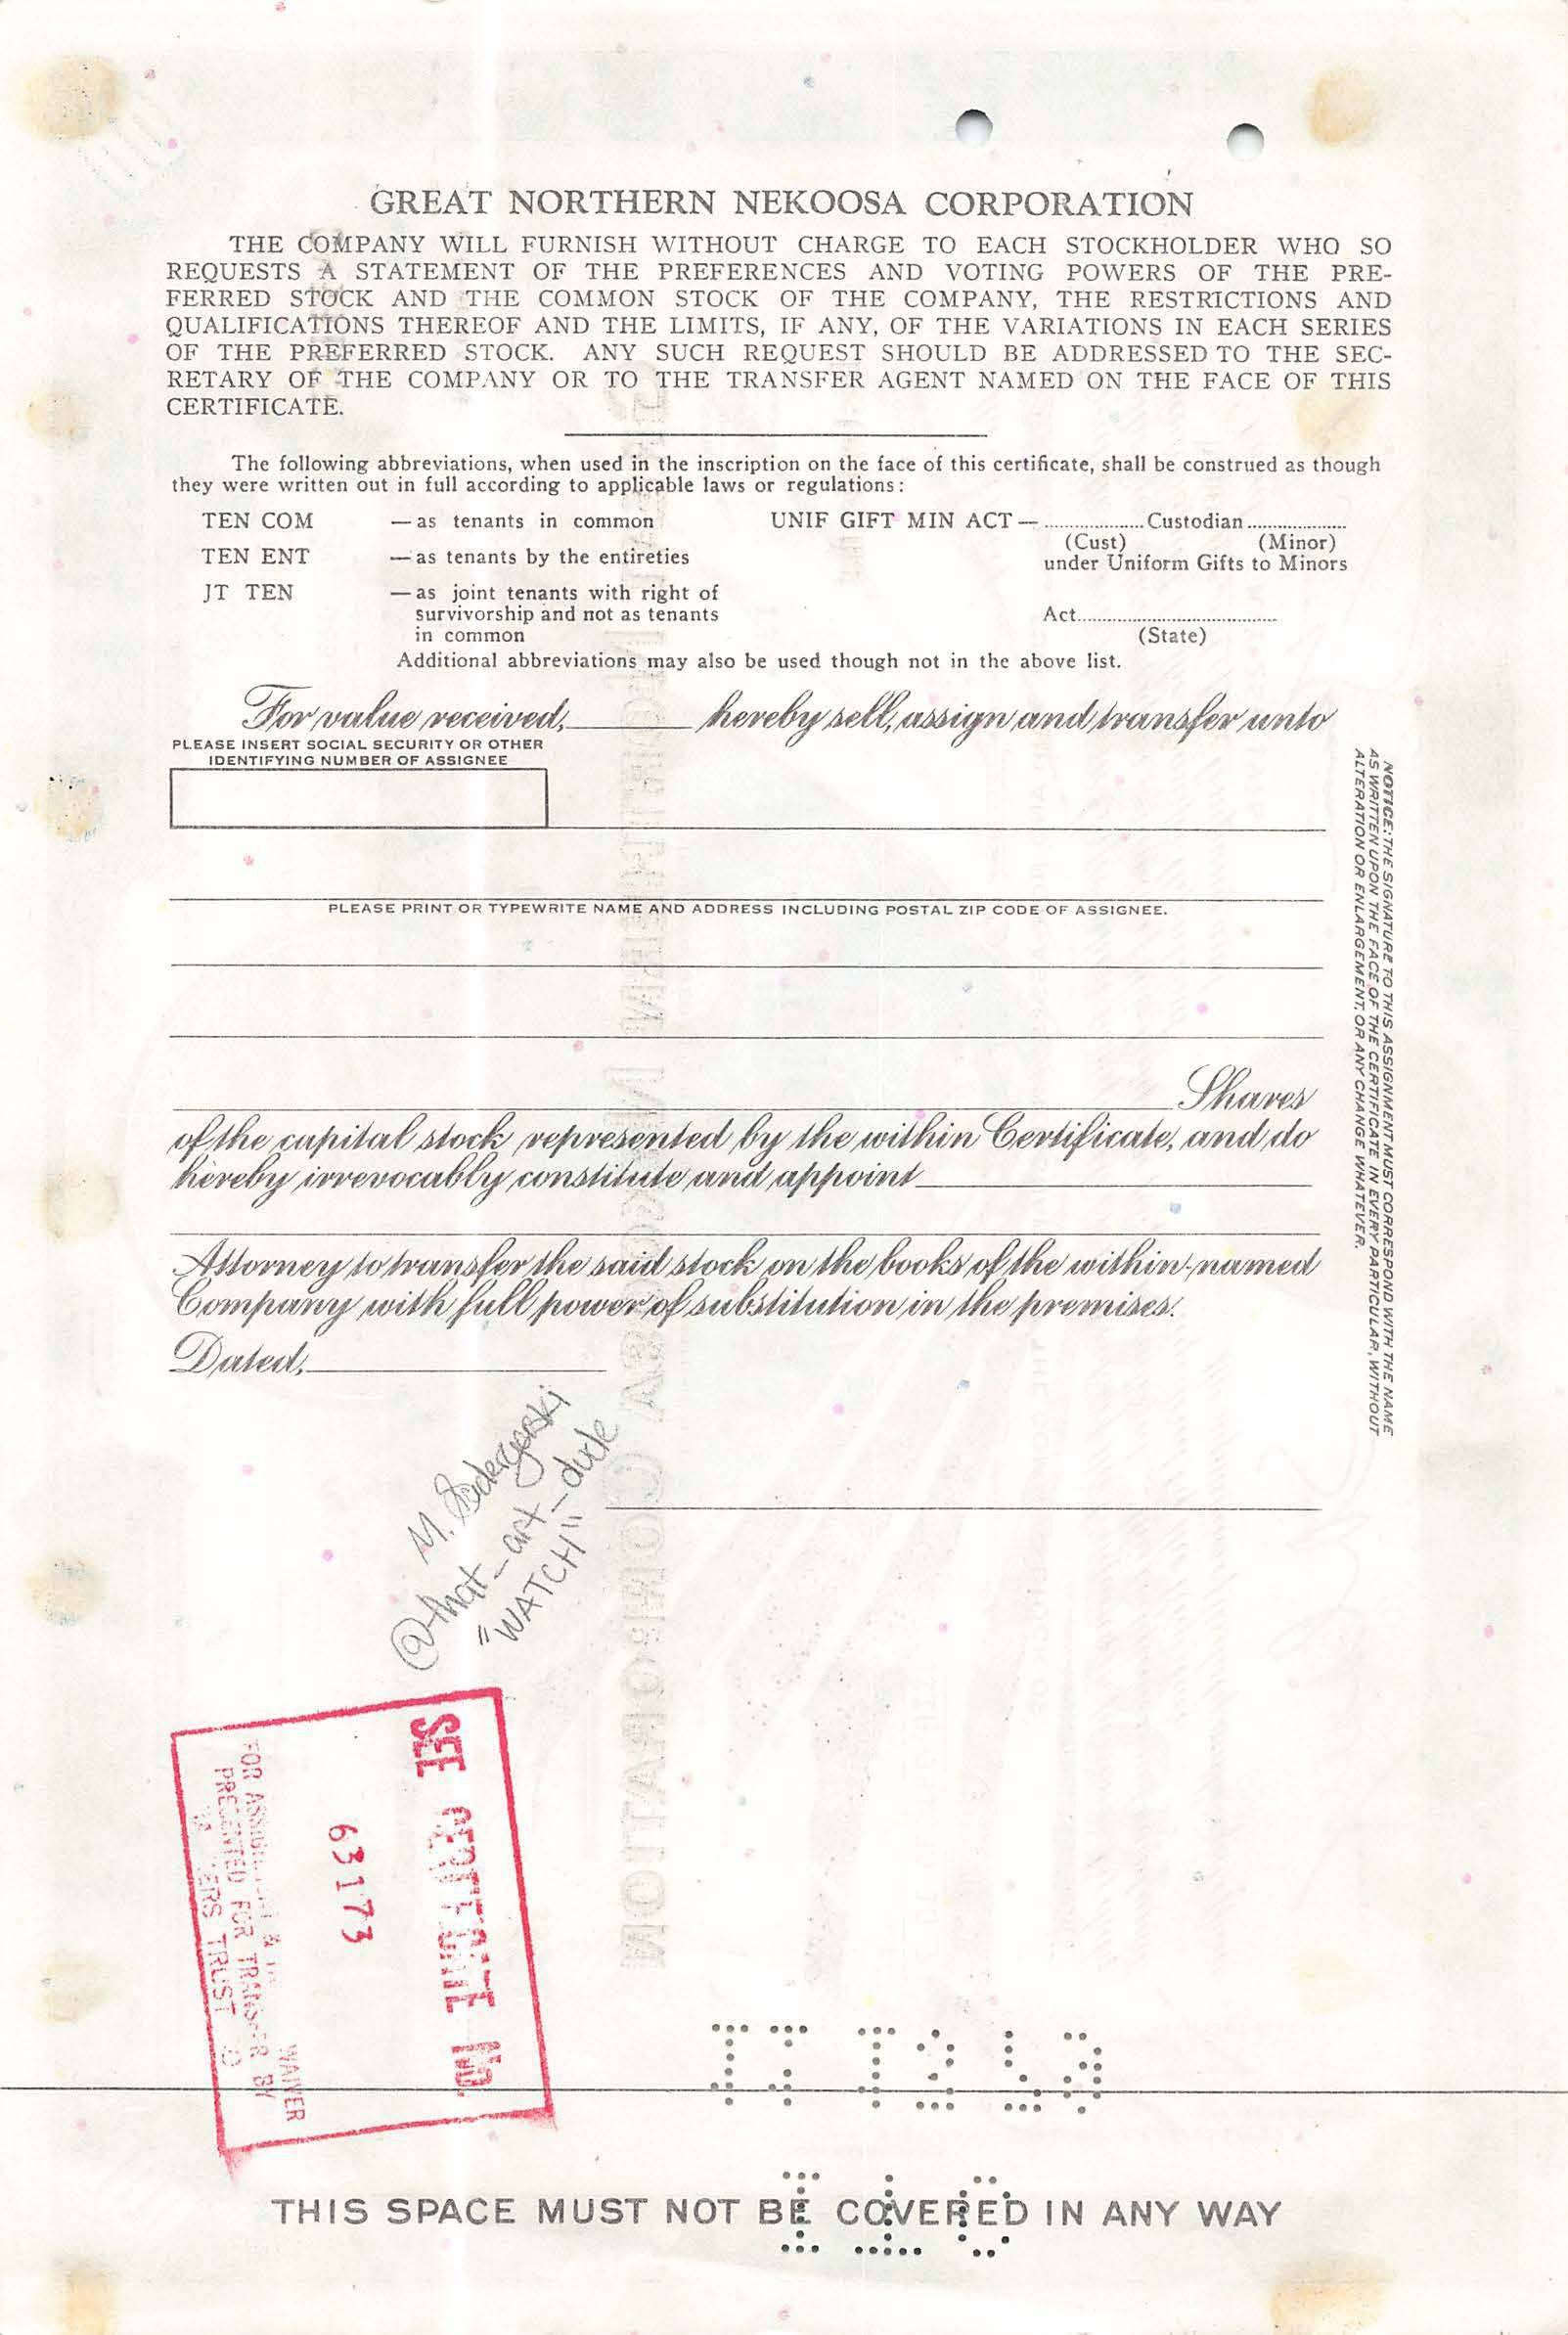 GREAT NORTHERN NEKOOSA CORPORATION
THE COMPANY WILL FURNISH WITHOUT CHARGE TO EACH STOCKHOLDER WHO SO
REQUESTS A STATEMENT OF THE PREFERENCES AND VOTING POWERS OF THE PRE-
FERRED STOCK AND THE COMMON STOCK OF THE COMPANY, THE RESTRICTIONS AND
QUALIFICATIONS THEREOF AND THE LIMITS, IF ANY, OF THE VARIATIONS IN EACH SERIES
OF THE PREFERRED STOCK. ANY SUCH REQUEST SHOULD BE ADDRESSED TO THE SEC-
RETARY OF THE COMPANY OR TO THE TRANSFER AGENT NAMED ON THE FACE OF THIS
CERTIFICATE.
The following abbreviations, when used in the inscription on the face of this certificate, shall be construed as though
they were written out in full according to applicable laws or regulations:
TEN COM —as tenants in common UNIF GIFT MIN ACT—....................Custodian....................
(Cust) (Minor)
TEN ENT —as tenants by the entireties
under Uniform Gifts to Minors
JT TEN —as joint tenants with right of
survivorship and not as tenants Act........................................
in common (State)
Additional abbreviations may also be used though not in the above list.
For value received, hereby sell, assign and transfer unto
PLEASE INSERT SOCIAL SECURITY OR OTHER
IDENTIFYING NUMBER OF ASSIGNEE
PLEASE PRINT OR TYPEWRITE NAME AND ADDRESS INCLUDING POSTAL ZIP CODE OF ASSIGNEE.
Shares
of the capital stock represented by the within Certificate, and do
hereby irrevocably constitute and appoint
Attorney to transfer the said stock on the books of the within-named
Company with full power of substitution in the premises.
Dated,
NOTICE: THE SIGNATURE TO THIS ASSIGNMENT MUST CORRESPOND WITH THE NAME
AS WRITTEN UPON THE FACE OF THE CERTIFICATE IN EVERY PARTICULAR, WITHOUT
ALTERATION OR ENLARGEMENT, OR ANY CHANGE WHATEVER.
M.
@that_art_dude
"WATCH"
SEE CERTIFICATE No.
63173
WAIVER
PRESENTED FOR TRANSFER BY
TRUST
THIS SPACE MUST NOT BE COVERED IN ANY WAY